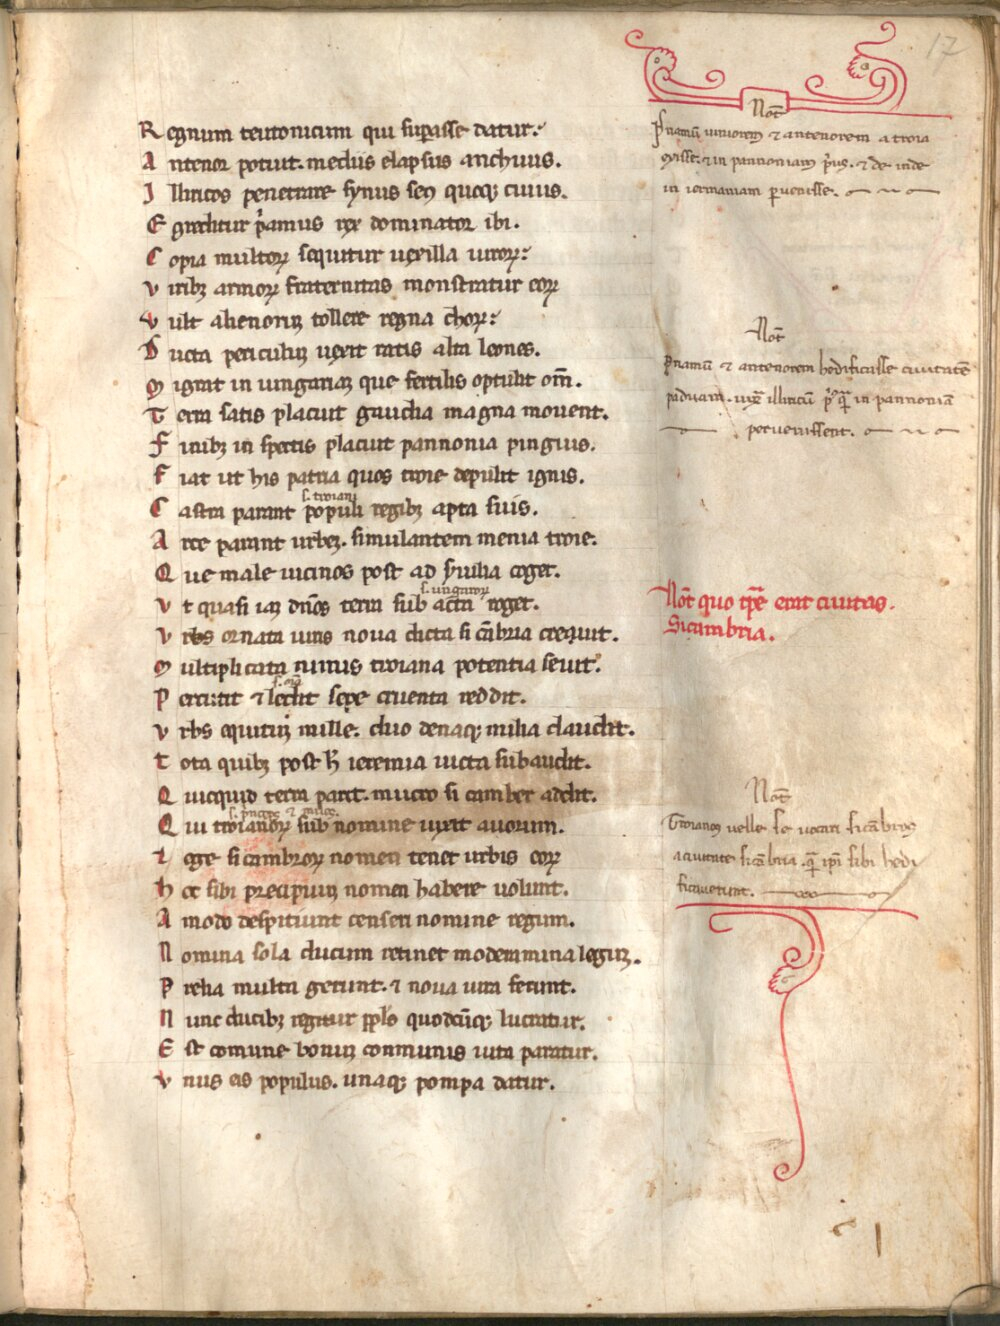 17
Regnum teutonicum qui supasse datur.
Antenor potuit. mediis elapsus anchiuus.
Illiricos penetrare synus seq quoqꝫ ciuus.
Egreditur p̓amus rex dominator ibi.
Copia multoꝝ sequitur uexilla uiroꝝ.
Viribꝫ armoꝝ fraternitas monstratur eoꝝ
Vult alienoꝝ tollere regna choꝝ.
Ducta periculis uexit ratis alta leones.
Migrat in ungariaꝫ que fertilis optulit om̄.
Terra satis placuit gaudia magna mouent.
Finibꝫ in spertis placuit pannonia pinguis.
Fiat ut his patria quos troie depulit ignis.
s. troiani
Castra parant populi regibꝫ apta suis.
Arce parant urbeꝫ. simulantem menia troie.
Que male uicinos post ad seruilia coget.
s. ungaroꝝ
Vt quasi iaꝫ dn̄os terra sub acta roget.
Vrbs ornata uiris noua dicta si cābria crequit.
Multiplicata nimis troiana potentia seuit.
Percutit ⁊ ledit sepe cruenta reddit.
Vrbs equituꝫ mille. duo denaqꝫ milia claudit.
Tota quibꝫ post h̄ ieremia iuicta subaudit.
Quicquid terra parit. mucro si camber adedit.
s. p̓ncipes ⁊ milites
Qui troianoꝝ sub nomine uixit auorum.
Lege sicambroꝝ nomen tenet urbis eoꝝ
Hec sibi precipuuꝫ nomen habere uolunt.
Amodo despitiunt censeri nomine regum.
Nomina sola ducum retinet moderamina leguꝫ.
Prelia multa gerunt. ⁊ noua iura ferunt.
Nunc ducibꝫ regitur ppl̄s quodcūqꝫ lucratur.
Est comune bonuꝫ communis iuta paratur.
Vnus eis populus. unaqꝫ pompa datur.
Not̄
Pͥamū iuniorem ⁊ antenorem a troia
exisse. ⁊ in pannoniam p̓us. ⁊ de inde
in iermaniam peruenisse.
Not̄
Priamū ⁊ antenorem hedificasse ciuitatē
paduam. iuxͣ illiricū p̓ꝰqͣ in pannoniā
peruenissent.
Not̄ quo tp̄e erat ciuitas.
Sicambria.
Not̄
Troianos uelle se uocari sicābros
a ciuitate sicābria. qͣ ip̄i sibi hedi
ficauerunt.